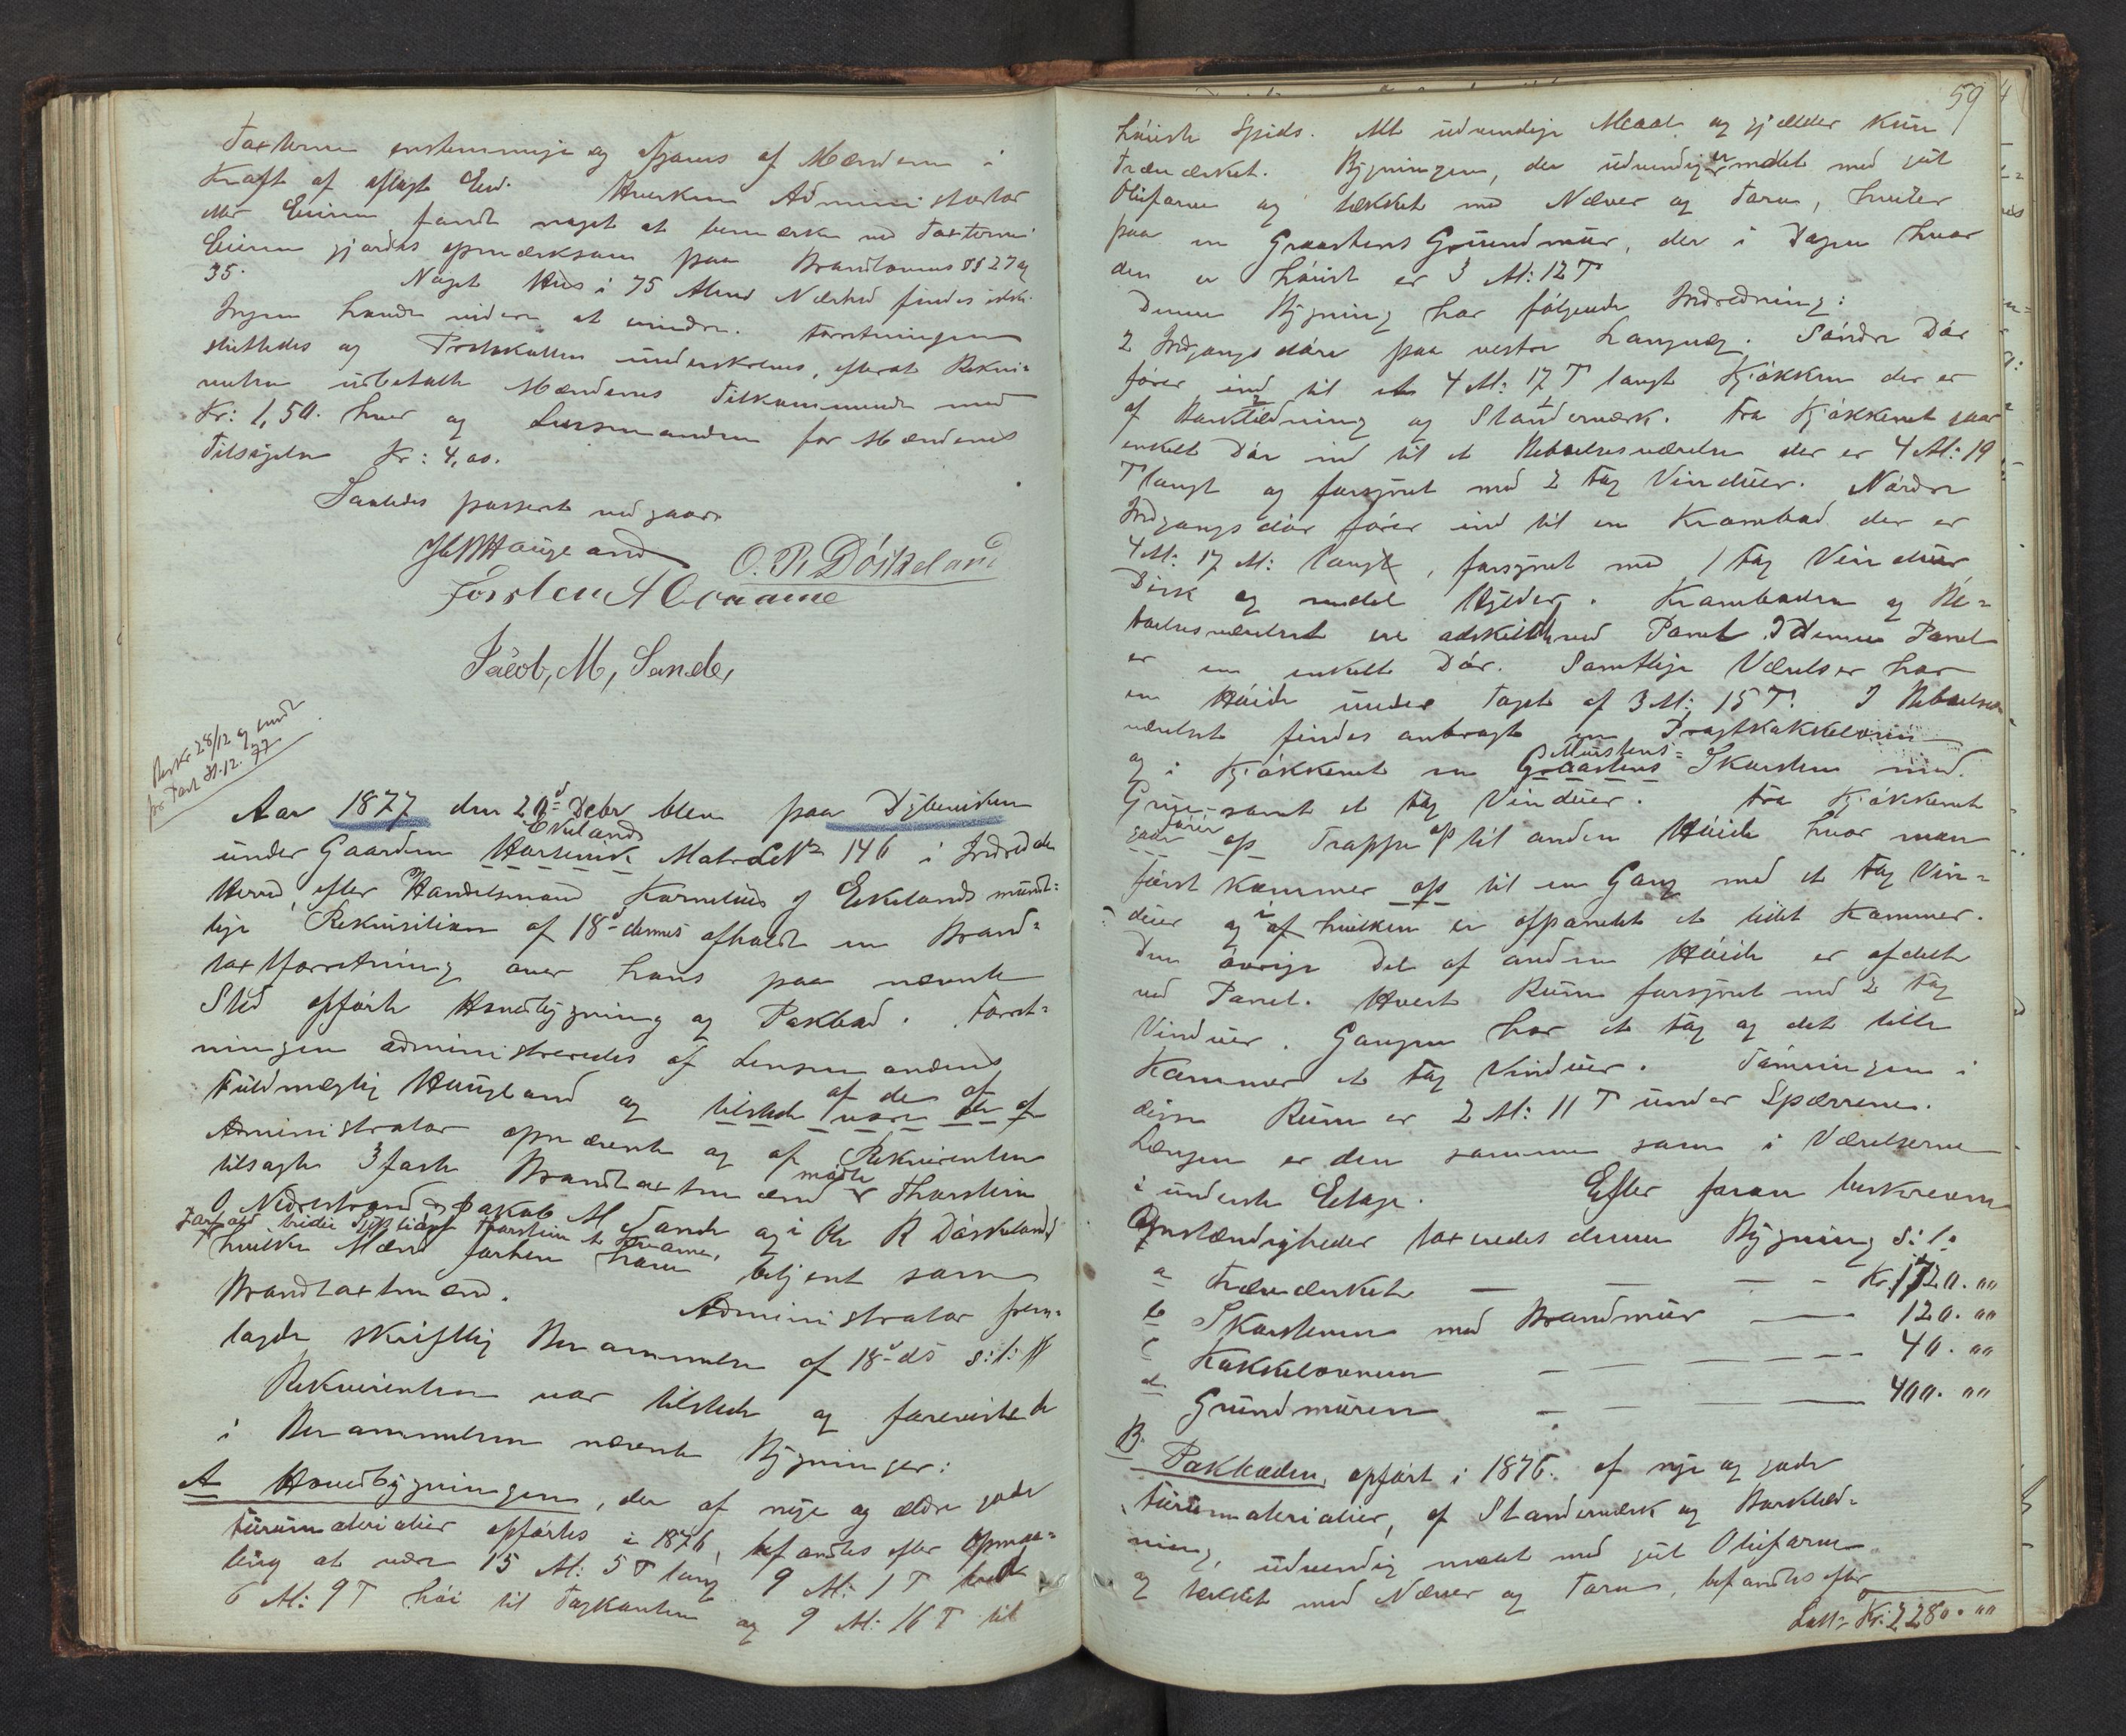 Taxterne enstemmige og afgaves af Mændene i
Kraft af aflagt Eed. Hverken Administrator
eller Eieren fandt noget at bemærke ved Taxterne
Eieren gjordes opmærksom paa Brandlovens §§ 27 og
35. Noget Hus i 75 Alens Nærhed findes ikke.
Ingen havde videre at erindre. Forretningen
sluttedes og Protokollen underskreves, efterat Rekvi-
renten udbetalte Mændenes Tilkommende med
Kr: 1,50. hver og Lensmanden for Mændenes
Tilsigelse Kr: 4,00.
Saaledes passeret vedgaar
Haugland O. R. Döskeland
Torsten A Qvamme
Jacob, M, Sande,
Beskr 28/12 og sendt
pr Post 31.12.77
Aar 1877 den 20d Debr blev paa Dybevigen
Ekelands
under Gaarden Matr LNr 146 i Indre
Herred, efter Handelsmand Kornelius Ekelands mundt-
lige Rekvisition af 18d dennes afholdt en Brand-
taxtforretning over hans paa nævnte
Sted opførte Hovedbygning og Pakbod. Forret-
ningen administreredes af Lensmandens
Fuldmægtig Haugland og tilstede vare
af de af
Administrator opnævnte og af Rekvirenten
tilsagte 3 faste Brandtaxtmænd
mødte
Thorstein
O Nedrestrand Jakob M Sande og Ole R Döskeland
Thorstein A Qvamme,
hvilke Mænd forhen have betjent som
Brandtaxtmænd. Administrator frem-
lagde skriftlig Berammelse af 18d ds s: l:
Rekvirenten var tilstede og foreviste de
i Berammelsen nævnte Bygninger:
A Hovedbygningen, der af nye og ældre gode
Furumaterialier opførtes i 1876, befandtes efter Opmaa-
ling at være 15 Al: 5 T lang 9 Al: 1 T bred
6 Al: 9 T høi til Tagkanten og 9 Al: 16 T til
59
høieste Spids. Alt udvendige Maal og gjælder kun
Træværket. Bygningen, der udvendig er malet med gul
Oliefarve og tækket med Næver og Torv, hviler
paa en Graastens Grundmur, der i Dagen hvor
den er høiest er 3 Al: 12 T
Denne Bygning har følgende Indredning:
2 Indgangsdøre paa vestre Langvæg. Søndre Dør
fører ind til et 4 Al: 17 T langt Kjøkken der er
af Bordklædning og Standerværk. Fra Kjøkkenet gaar
enkelt Dør ind til et Beboelsesværelse der er 4 Al: 19
T langt og forsynet med 2 Fag Vinduer. Nordre
Indgangsdør fører ind til en Krambod der er
4 Al: 17 Al: langt, forsynet med 1 Fag Vinduer
Disk og endel Hylder. Kramboden og Be-
boelsesværelset ere adskilt ved Panel I denne Panel
er en enkelt Dør. Samtlige Værelser har
en Høide under Taget af 3 Al: 15 T. I Beboelses-
værelset findes anbragt en Dragtkakkelovn
Murstens-
og i Kjøkkenet en Graastens Skorsten med
Grue samt et Fag Vinduer. Fra Kjøkkenet
fører
gaar op Trappe op til anden Høide hvor man
først kommer op til en Gang med et Fag Vin-
duer og af hvilken er afpanelet et lidet Kammer.
Den øvrige Del af anden Høide er afdelt
ved Panel. Hvert Rum forsynet med 2 Fag
Vinduer. Gangen har et Fag og det lille
Kammer et Fag Vinduer. Tømringen i
disse Rum er 2 Al: 11 T under Spærrene.
Længen er den samme som i Værelserne
i underste Etage. Efter foran beskrevne
Omstændigheder taxeredes denne Bygning s: l:
a Træværket — — — Kr. 1720. ""
b Skorstenen med Brandmur — 120. ""
c Kakkelovnen — — — 40. ""
d Grundmuren — — — 400. ""
B. Pakboden, opført i 1876. af nye og gode
Furumaterialier, af Standerværk og Bordklæd-
ning, udvendig malet med gul Oliefarve
og tækket med Næver og Torv, befandtes efter
Lat: Kr: 2280. ""